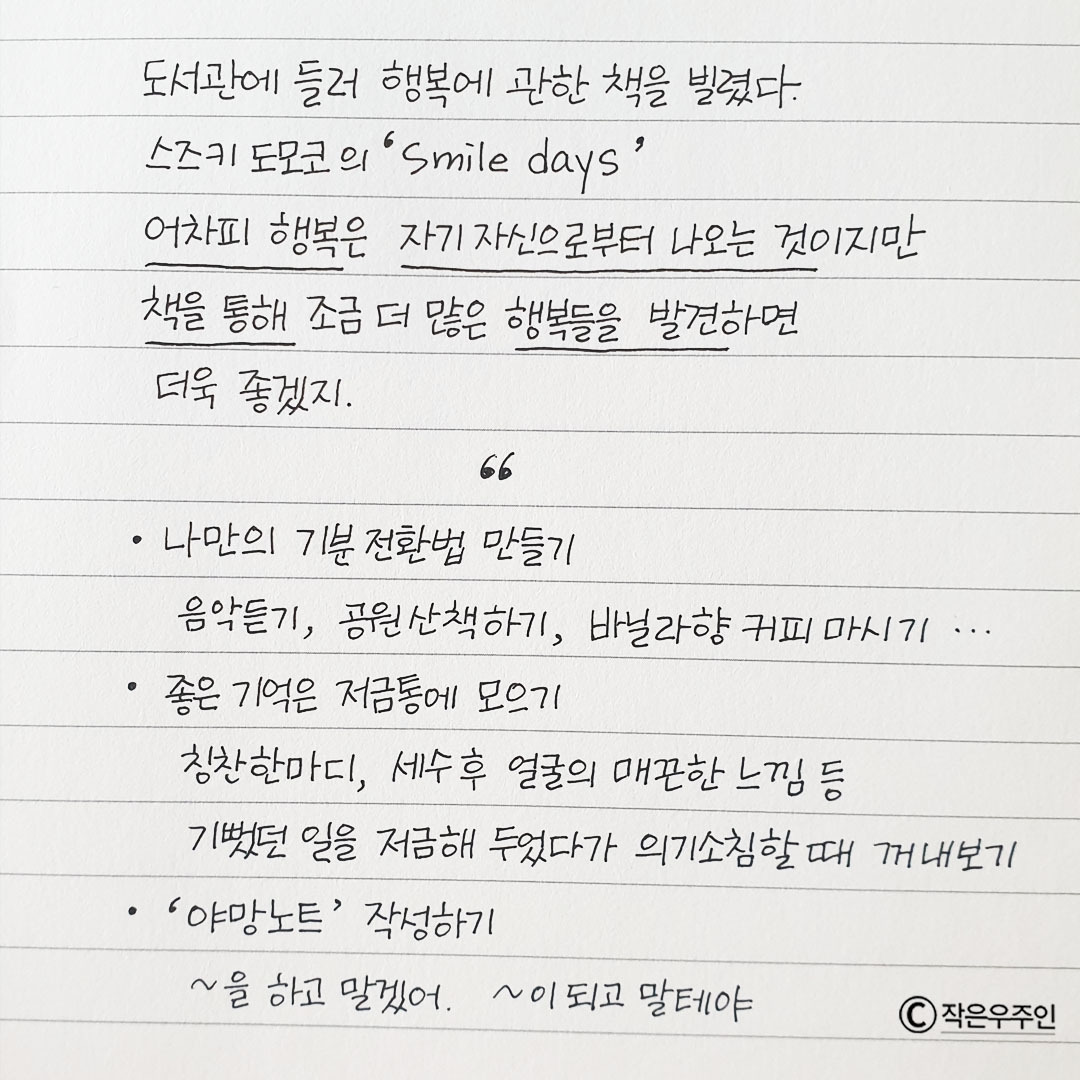 도서관에 들러 행복에 관한 책을 빌렸다.
스즈키 도모코의 ‘Smile days’
어차피 행복은 자기 자신으로부터 나오는 것이지만
책을 통해 조금 더 많은 행복들을 발견하면
더욱 좋겠지.
“
• 나만의 기분 전환법 만들기
음악듣기, 공원산책하기, 바닐라향 커피 마시기 …
• 좋은 기억은 저금통에 모으기
칭찬한마디, 세수 후 얼굴의 매끈한 느낌 등
기뻤던 일을 저금해 두었다가 의기소침할 때 꺼내보기
• ‘야망노트’ 작성하기
~을 하고 말겠어. ~이 되고 말테야
ⓒ작은우주인